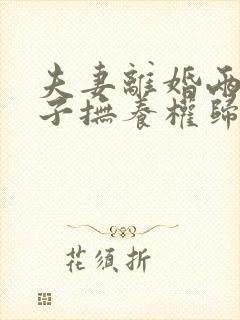 夫妻離婚兩
子撫養權歸
花須折